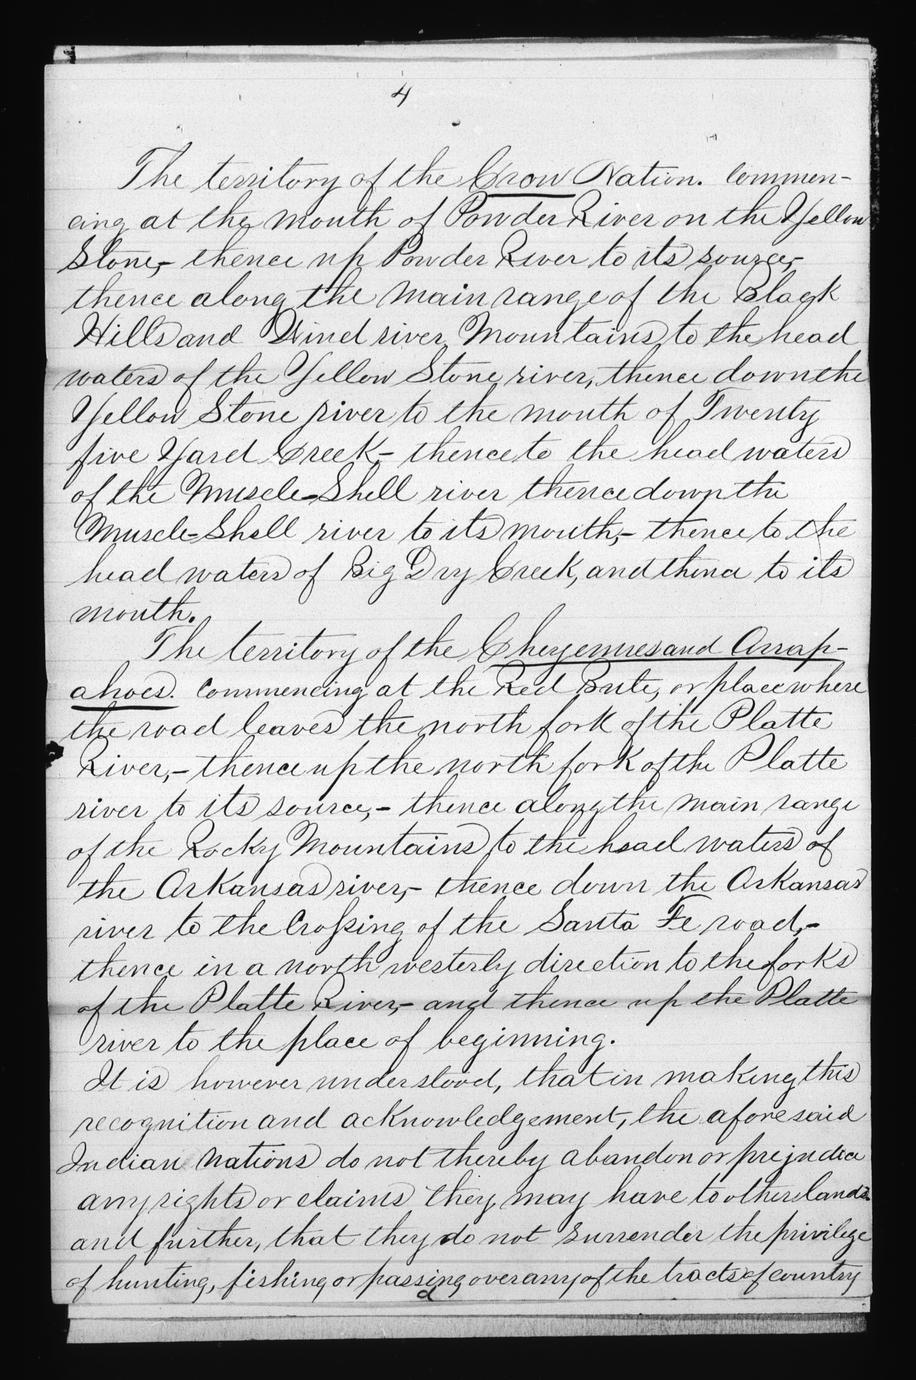 4
The territory of the Crow Nation. Commen-
cing at the mouth of Powder River on the Yellow
Stone,- thence up Powder River to its source,-
thence along the main range of the Black
Hills and Wind river Mountains to the head
waters of the Yellow Stone river, thence down the
Yellow Stone river to the mouth of Twenty
five Yard Creek- thence to the head waters
of the Muscle-Shell river thence down the
Muscle-Shell river to its mouth,- thence to the
head waters of Big Dry Creek, and thence to its
mouth.
The territory of the Cheyennes and Arrap-
ahoes. Commencing at the Red Bute, or place where
the road leaves the north fork of the Platte
River,- thence up the north fork of the Platte
river to its source,- thence along the main range
of the Rocky Mountains to the head waters of
the Arkansas river,- thence down the Arkansas
river to the Crossing of the Santa Fe road,-
thence in a north westerly direction to the forks
of the Platte River,- and thence up the Platte
river to the place of beginning.
It is however understood, that in making this
recognition and acknowledgement, the aforesaid
Indian Nations do not thereby abandon or prejudice
any rights or claims they may have to other lands
and further, that they do not surrender the privilege
of hunting, fishing or passing over any of the tracts of country